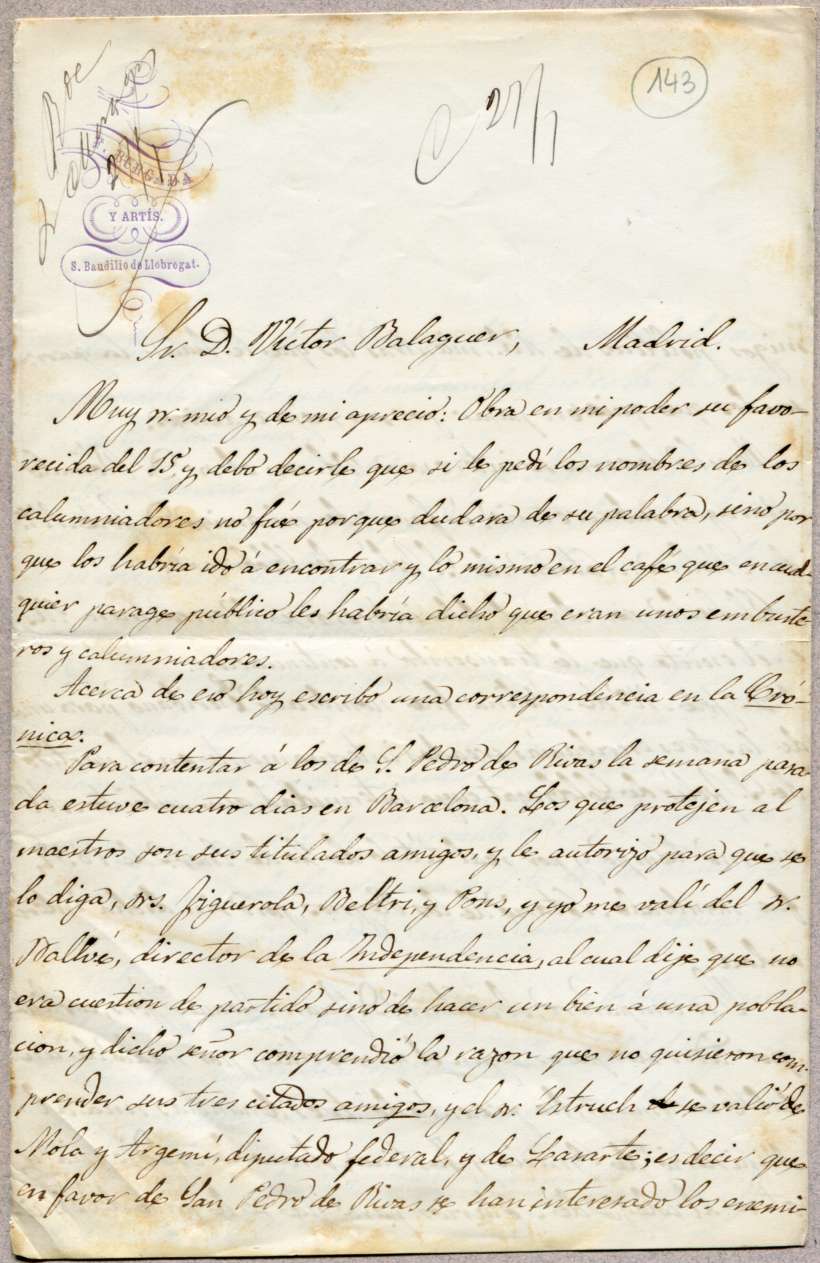 143
C 27/1
Y ARTÍS.
S. Baudilio de Llobregat.
Sr. D. Víctor Balaguer, Madrid.
Muy sr. mio y de mi aprecio: Obra en mi poder su favo-
recida del 15, y debo decirle que si le pedí los nombres de los
calumniadores no fué porque dudara de su palabra, sino por
que los habría ido á encontrar y lo mismo en el café que en cual-
quier parage público les habría dicho que eran unos embuste-
ros y calumniadores.
Acerca de eso hoy escribo una correspondencia en la Cró-
nica.
Para contentar á los de S. Pedro de Rivas la semana pasa-
da estuve cuatro dias en Barcelona. Los que protejen al
maestros son sus titulados amigos, y le autorizo para que se
lo diga, srs. Figuerola, Beltri, y Pons, y yo me valí del sr.
Vallvé, director de la Independencia, al cual dije que no
era cuestion de partido sino de hacer un bien á una pobla-
cion, y dicho señor comprendió la razon que no quisieron com-
prender sus tres citados amigos, y el sr. Ustruch se valió de
Mola y Argemí, diputado federal, y de Lasarte; es decir que
en favor de San Pedro de Rivas se han interesado los enemi-